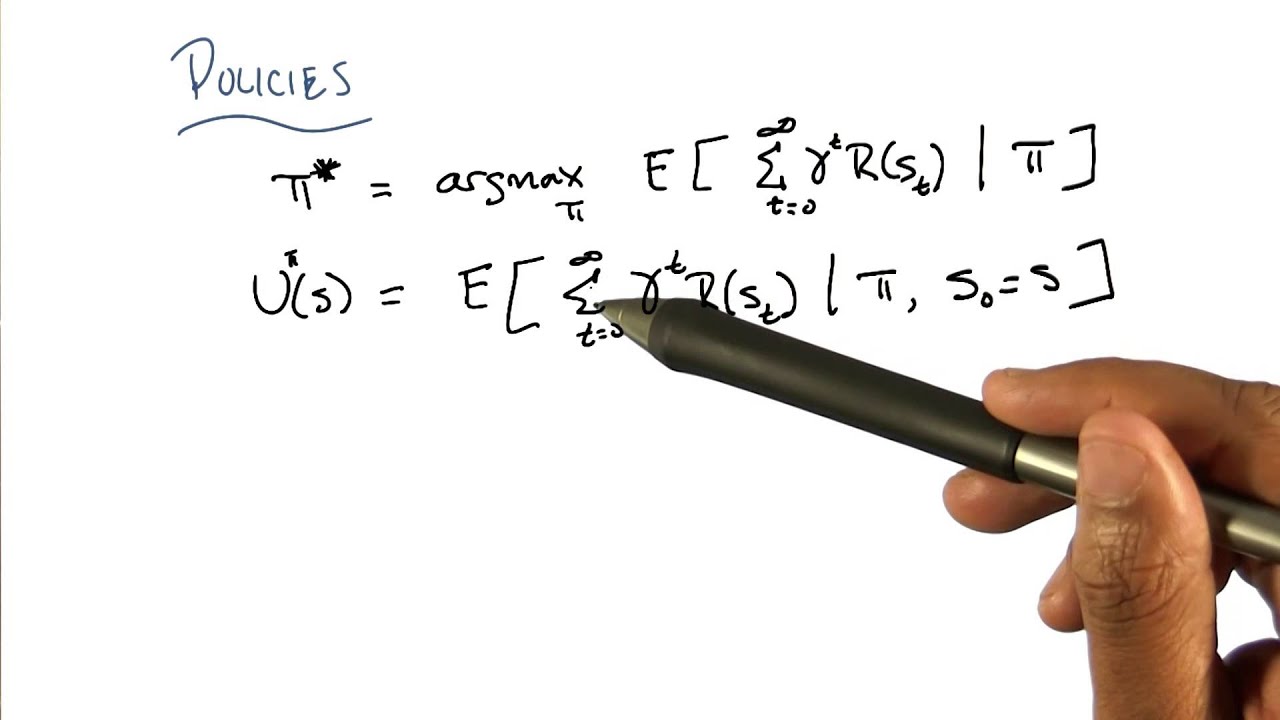 POLICIES
π* = argmax_π E[ ∑_{t=0}^{∞} γ^t R(s_t) | π ]
U^π(s) = E[ ∑_{t=0}^{∞} γ^t R(s_t) | π, s_0 = s ]